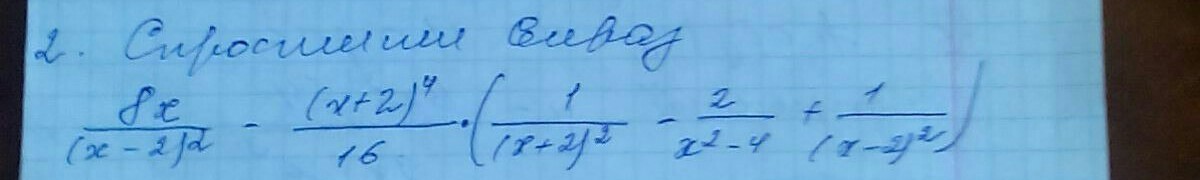 2. Спростити вираз
\frac{8x}{(x-2)^2} - \frac{(x+2)^4}{16} \cdot \left( \frac{1}{(x+2)^2} - \frac{2}{x^2-4} + \frac{1}{(x-2)^2} \right)